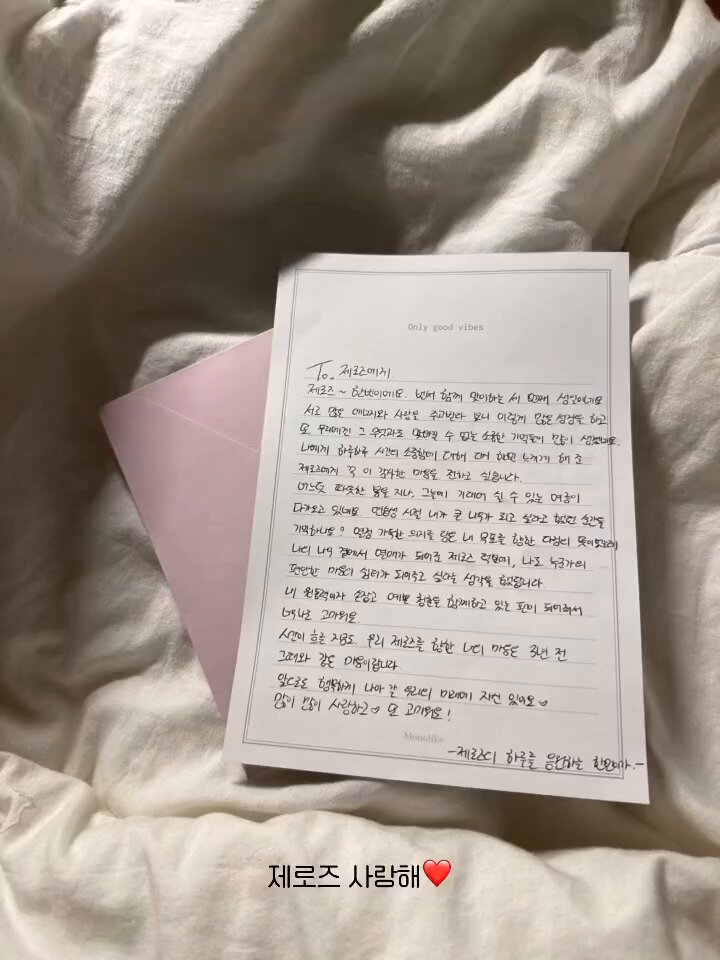 Only good vibes
To. 제로즈에게
제로즈 ~ 한빈이에요. 벌써 함께 맞이하는 세 번째 생일이네요
서로 많은 에너지와 사랑을 주고받다 보니 이렇게 많은 성장을 하고
또, 우리에겐 그 무엇과도 맞바꿀 수 없는 소중한 기억들이 많이 생겼네요.
나에게 하루하루 시간의 소중함에 대해 더더 한번 느끼게 해 준
제로즈에게 꼭 이 감사한 마음을 전하고 싶습니다.
어느덧 따뜻한 봄을 지나, 그늘에 기대어 쉴 수 있는 여름이
다가오고 있네요 연습생 시절 내가 큰 나무가 되고 싶다고 했던 순간을
기억하나요? 열정 가득한 의지를 담은 내 목표를 향한 다짐의 뜻이었는데
나의 나무 곁에서 열매가 되어준 제로즈 덕분에, 나도 누군가의
편안한 마음의 쉼터가 되어주고 싶다는 생각을 했답니다.
내 원동력이자 손잡고 예쁜 청춘을 함께하고 있는 편이 되어줘서
너무나도 고마워요
시간이 흐른 지금도, 우리 제로즈를 향한 나의 마음은 3년 전
그때와 같은 마음이랍니다.
앞으로도 행복하게 나아 갈 우리의 미래에 자신 있어요
많이 많이 사랑하고 또 고마워요!
Monolike
-제로즈의 하루를 응원하는 한빈이가.-
제로즈 사랑해❤️